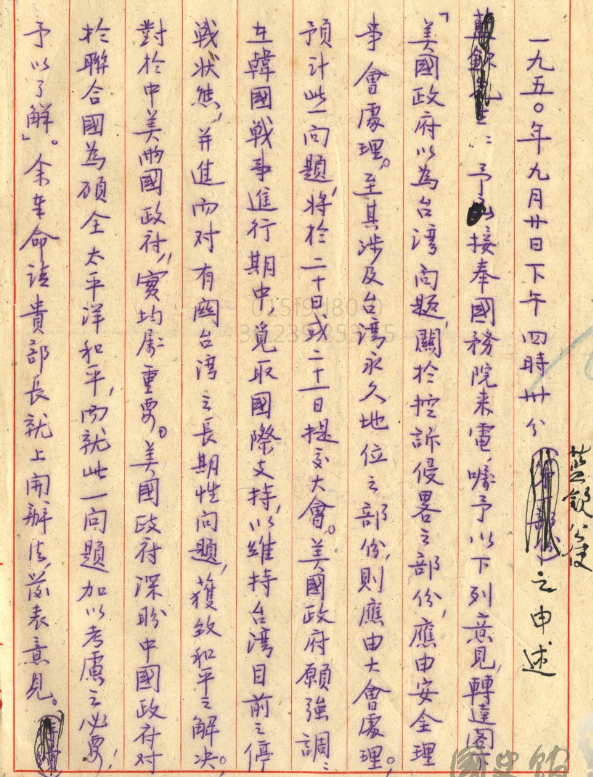 一九五〇年九月廿日下午四時卅分藍欽公使之申述
予接奉國務院來電,囑予以下列意見,轉達閣下
「美國政府以為台灣問題,關於控訴侵畧之部份,應由安全理
事會處理。至其涉及台灣永久地位之部份,則應由大會處理。
預計此一問題,將於二十日或二十一日提交大會。美國政府願強調:
在韓國戰事進行期中覓取國際支持,以維持台灣目前之停
战狀態,并進而对有關台灣之長期性問題,獲致和平之解决。
對於中美兩國政府,實均屬重要。美國政府深盼中國政府对
於聯合國為顧全太平洋和平,而就此一問題加以考慮之必要,
予以了解」。余奉命請貴部長就上開辦法,發表意見。
國史館